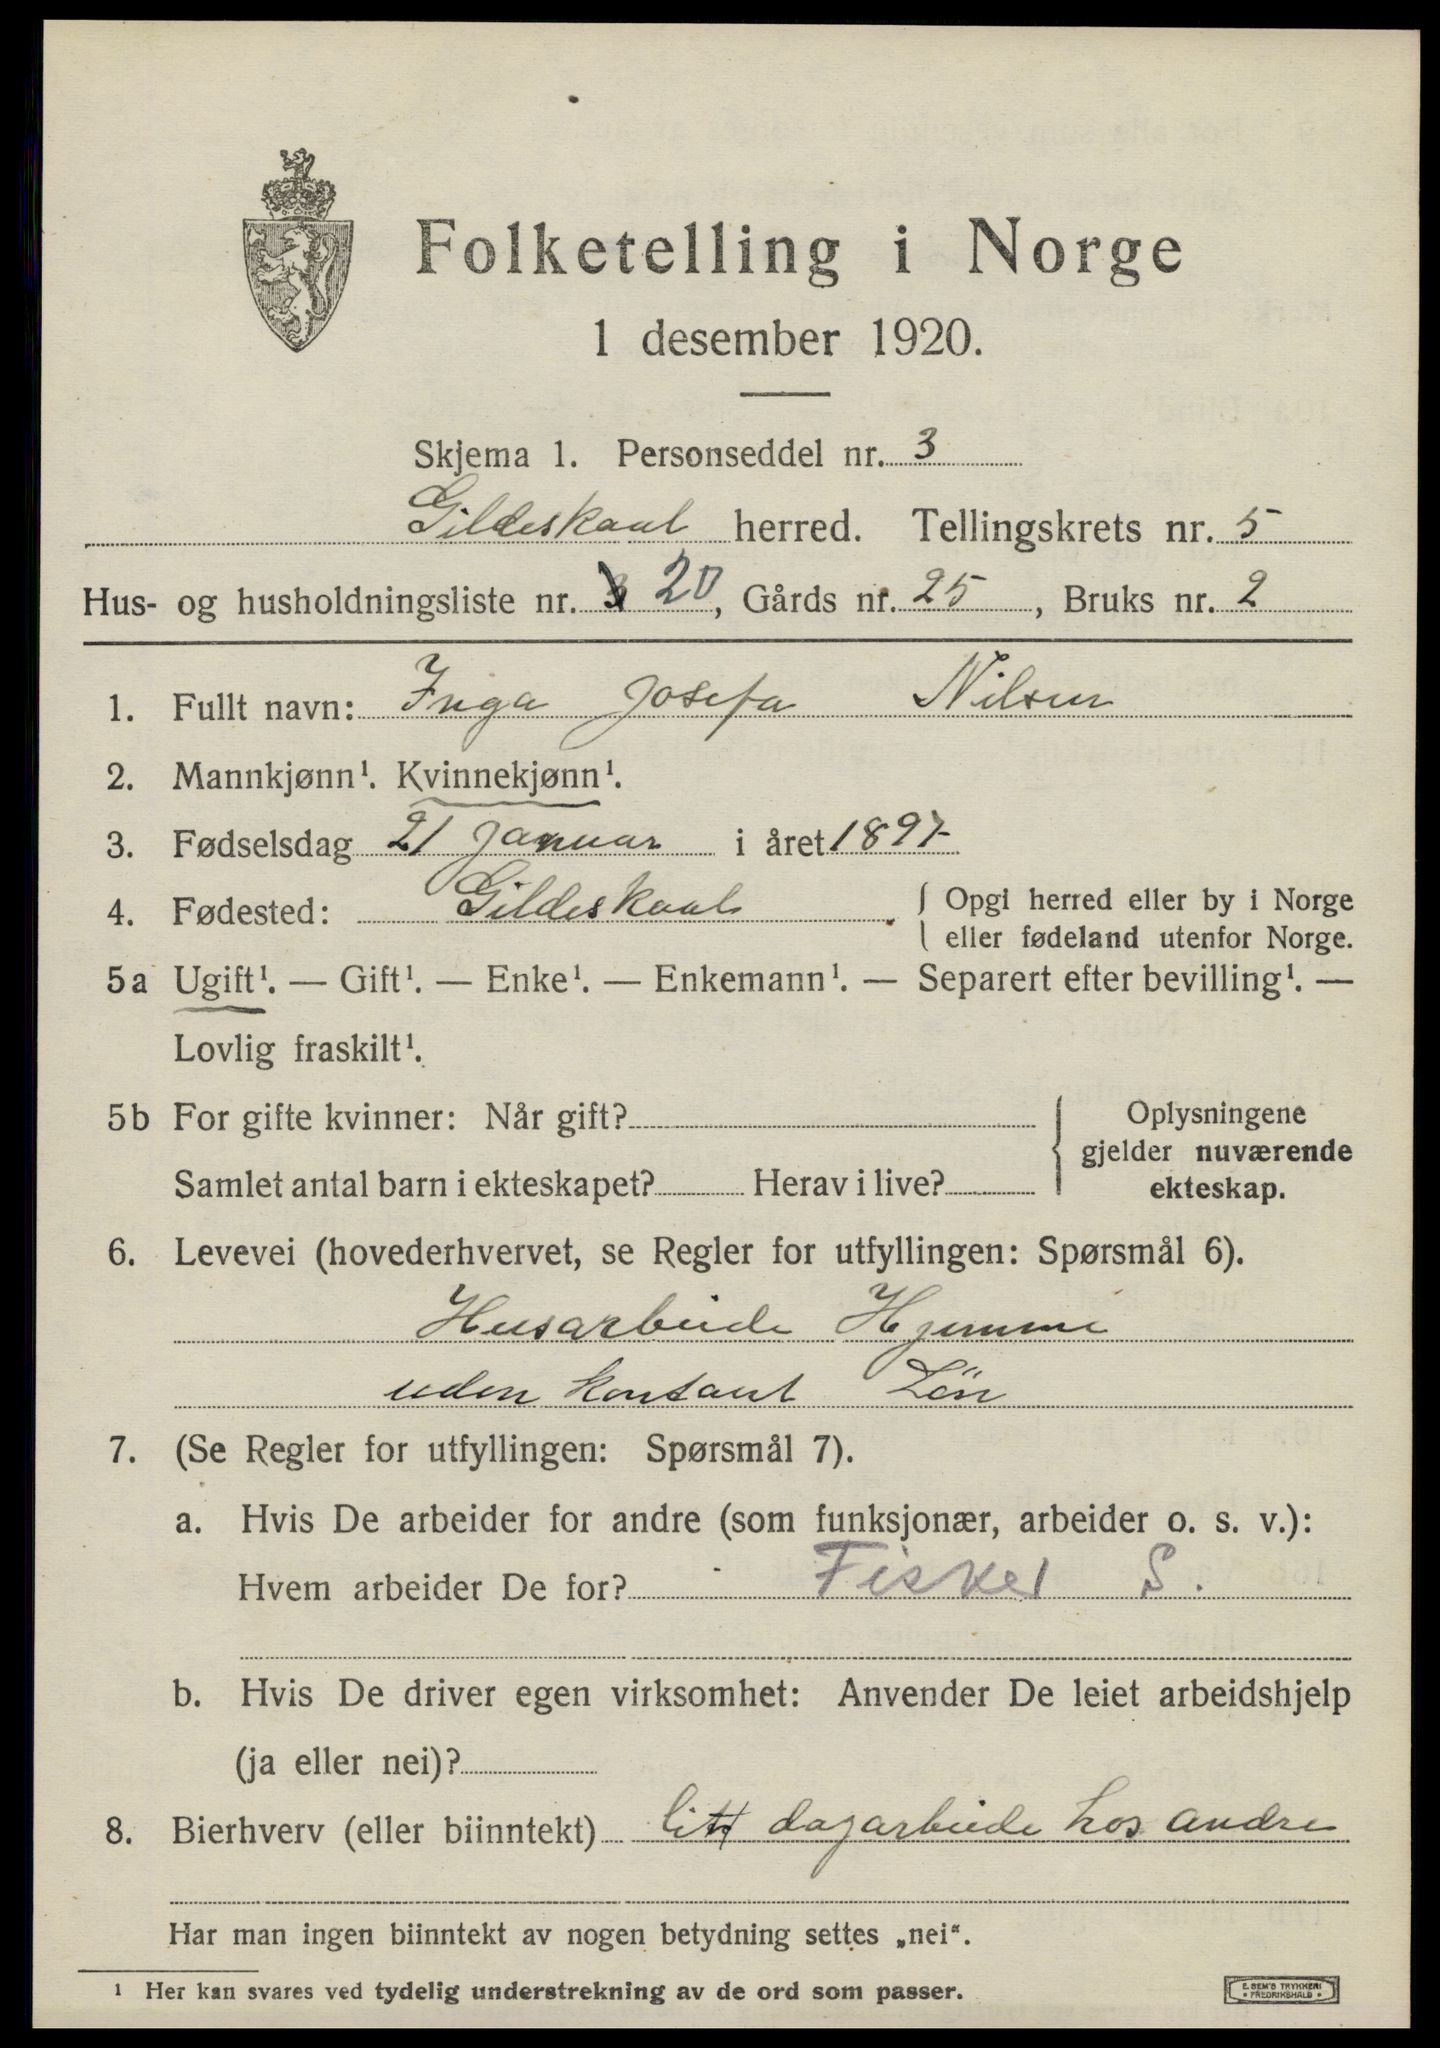 Folketelling i Norge
1 desember 1920.
Skjema 1. Personseddel nr. 3
Gildeskaal herred. Tellingskrets nr. 5
Hus- og husholdningsliste nr. 3 20, Gårds nr. 25, Bruks nr. 2
1. Fullt navn: Inga Josefa Nilsen
2. Mannkjønn¹. Kvinnekjønn¹.
3. Fødselsdag 21 Januar i året 1897
4. Fødested: Gildeskaal { Opgi herred eller by i Norge
eller fødeland utenfor Norge.
5a Ugift¹. — Gift¹. — Enke¹. — Enkemann¹. — Separert efter bevilling¹. —
Lovlig fraskilt¹.
5b For gifte kvinner: Når gift? Oplysningene
gjelder nuværende
Samlet antal barn i ekteskapet? Herav i live? ekteskap.
6. Levevei (hovederhvervet, se Regler for utfyllingen: Spørsmål 6).
Husarbeide Hjemme
uden kontant Løn
7. (Se Regler for utfyllingen: Spørsmål 7).
a. Hvis De arbeider for andre (som funksjonær, arbeider o. s. v.):
Hvem arbeider De for? Fisker S.
b. Hvis De driver egen virksomhet: Anvender De leiet arbeidshjelp
(ja eller nei)?
8. Bierhverv (eller biinntekt) litt dagarbeide hos andre
Har man ingen biinntekt av nogen betydning settes „nei“.
¹ Her kan svares ved tydelig understrekning av de ord som passer.
E. SEM'S TRYKKERI
• FREDRIKSHALD •